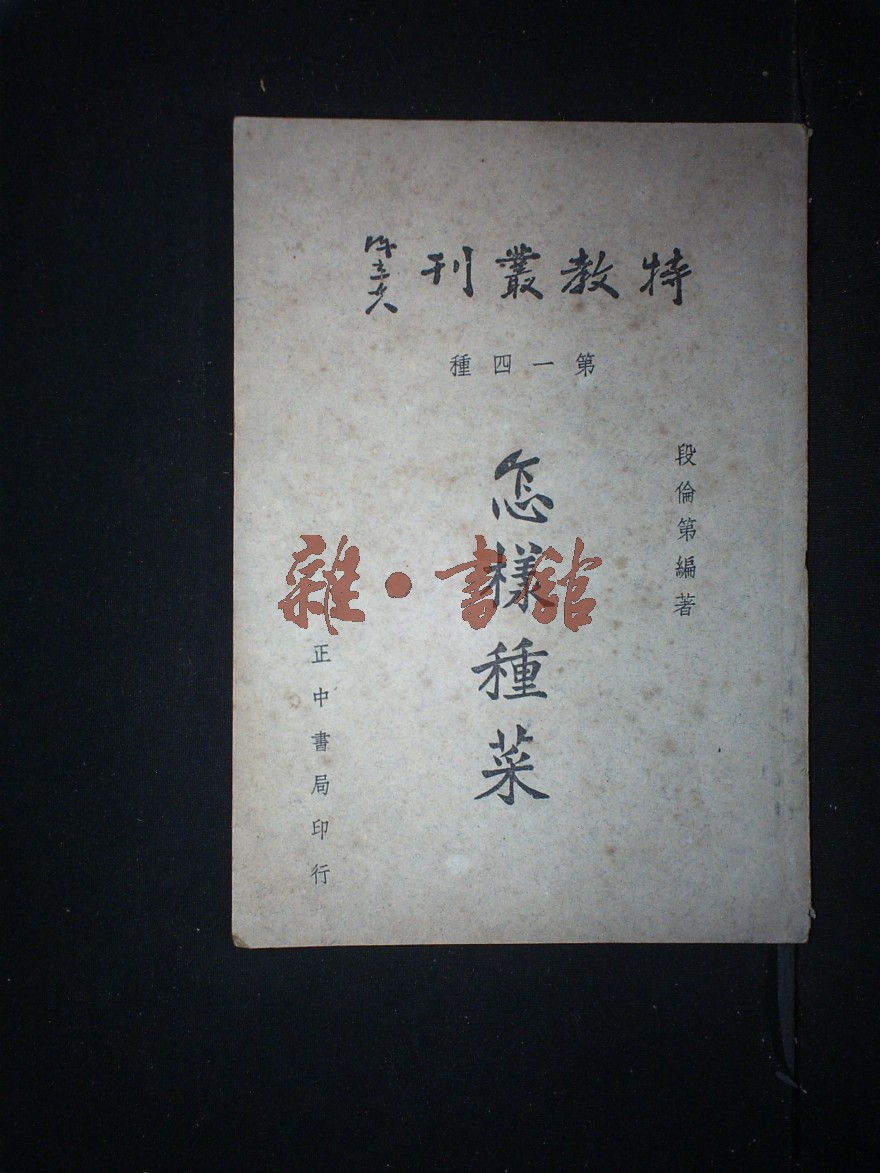 特教叢刊
陳立夫
第一四種
段倫第編著
怎樣種菜
正中書局印行
雜·書館